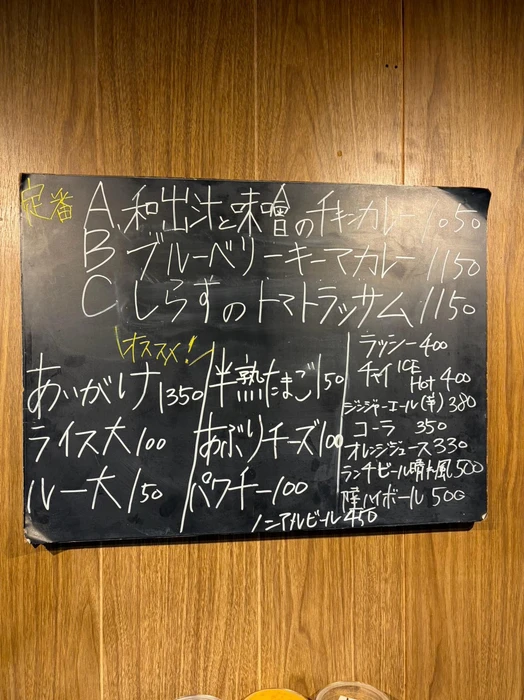 定番
A 和出汁と味噌のチキンカレー 1050
B ブルーベリーキーマカレー 1150
C しらすのトマトラッサム 1150
オススメ!
あいがけ 1350
ライス大 100
ルー大 150
半熟たまご 150
あぶりチーズ 100
パクチー 100
ノンアルビール 450
ラッシー 400
チャイ ICE
Hot 400
ジンジャーエール(辛) 380
コーラ 350
オレンジジュース 330
ランチビール晴れ風 500
陸ハイボール 500